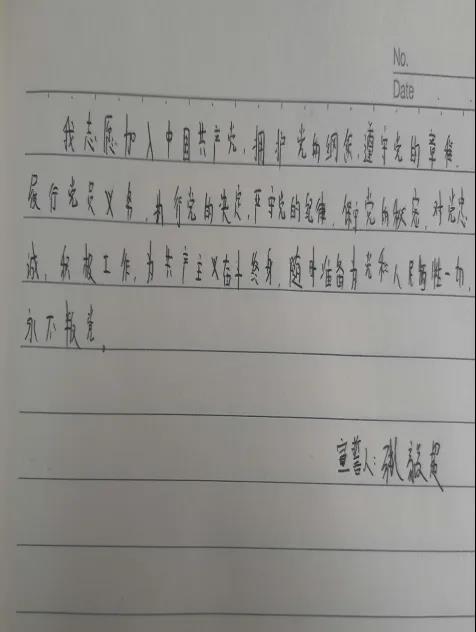 No.
Date
我志愿加入中国共产党,拥护党的纲领,遵守党的章程,
履行党员义务,执行党的决定,严守党的纪律,保守党的秘密,对党忠
诚,积极工作,为共产主义奋斗终身,随时准备为党和人民牺牲一切,
永不叛党。
宣誓人:张毅超